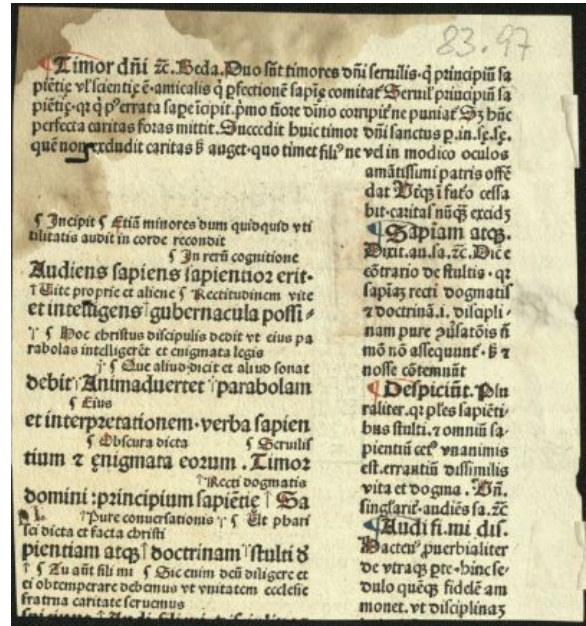 83.97
¶Timor dñi ⁊c̄. Beda. Duo sũt timores dñi seruilis. q̃ principiũ sa
piẽtię vł scientię ē. amicalis q̃ ꝑfectionē sapiẽ comitat᷑ Seruil᷑ principiũ sa
piẽtię. qꝛ q̇ pꝰ errata sape ĩcipit. pͥmo tĩore diuĩo corripit᷑ ne puniat᷑ Sꝫ hũc
perfecta caritas foras mittit. Succedit huic timor dñi sanctus ꝑ. in. sę. sę.
quē non excludit caritas ꝫ auget. quo timet filiꝰ ne vel in modico oculos
amãtissimi patris offẽ
dat Utqꝫ ĩ futo cessa
bit. caritas nũq̃ excidꝫ
¶ Incipit ¶ Etiã minores dum quidquid vti
tilitatis audit in corde recondit
¶ In rerũ cognitione
Audiens sapiens sapientior erit.
⸆ Vite proprie et aliene ¶ Rectitudinem vite
et intelligens gubernacula possi⸗
⸆ ¶ Hoc christus discipulis dedit vt eius pa
rabolas intelligerēt et enigmata legis
⸆ ¶ Que aliud dicit et aliud sonat
debit Animaduertet parabolam
¶ Eius
et interpretationem. verba sapien
¶ Obscura dicta ¶ Seruilis
tium ⁊ ęnigmata eorum . Timor
⸆ Recti dogmatis
domini : principium sapiẽtię Sa
⸆ Pure conuersationis ⸆ ¶ Vt phari
sei dicta et facta christi
pientiam atqꝫ doctrinam stulti d
⸆ ¶ Tu aũt fili mi ¶ Sic enim deũ diligere et
ei obtemperare debemus vt vnitatem ecclesie
fratrna caritate seruemus
¶Sapiam atqꝫ.
Dixit. au. sa. ⁊c̄. Dic̄ e
cõtrario de stultis . qꝛ
sapiãꝫ recti dogmatis
⁊ doctrinã .i. discipli-
nam pure ꝯũsatõis fi
mõ nõ assequunt᷑ . ꝫ ⁊
nosse cõtemnũt
¶Despiciũt. Plu
raliter. qꝛ pl̃es sapiẽti-
bus stulti. ⁊ omniũ sa-
pientiũ cetꝰ vnanimis
est. errantiũ dissimilis
vita et dogma . Vñ.
singłarit᷑. audiẽs sa. ⁊c̄
¶Audi fi. mi dis.
Hacten᷒ ꝓuerbialiter
de vtraqꝫ ꝑte. hinc se-
dulo quẽqꝫ fidelē am
monet. vt disciplinaꝫ